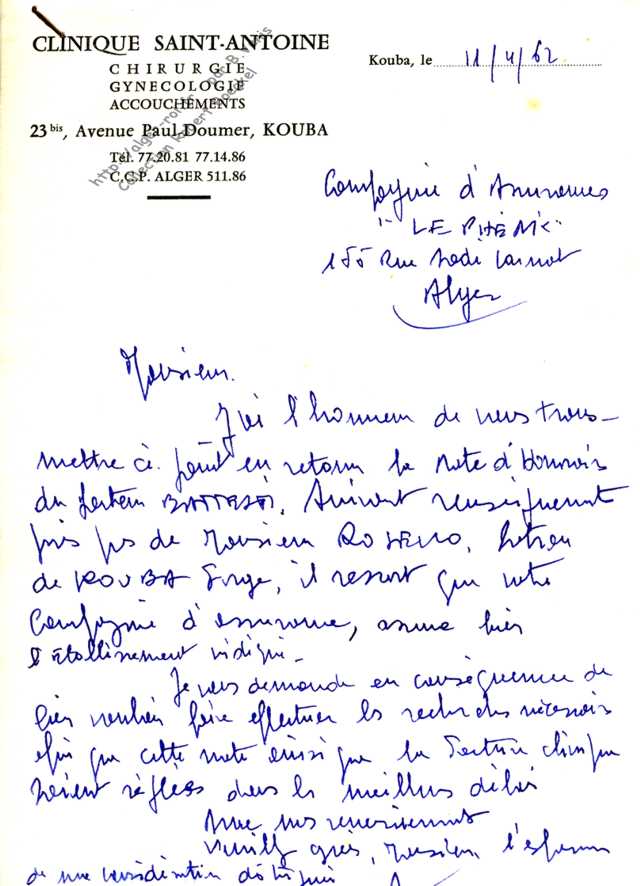 CLINIQUE SAINT-ANTOINE
CHIRURGIE
GYNECOLOGIE
ACCOUCHEMENTS
23 bis, Avenue Paul-Doumer, KOUBA
Tél. 77.20.81 77.14.86
C.C.P. ALGER 511.86
Kouba, le 11/4/62
Compagnie d'Assurances
"LE PHENIX"
155 Rue Sadi Carnot
Alger
Monsieur.
J'ai l'honneur de vous trans-
mettre ci-joint en retour la note d'honoraires
du docteur BATTESTI, Suivant renseignement
pris ps de Monsieur
de KOUBA Gorge, il ressort que votre
Compagnie d'assurance, assure bien
l'établissement indiqué.
Je vous demande en conséquence de
bien vouloir faire effectuer les recherches nécessaires
afin que cette note ainsi que la facture clinique
soient réglées dans les meilleurs délais
Avec mes remerciements
Veuillez agréer, Monsieur, l'expression
de ma considération distinguée